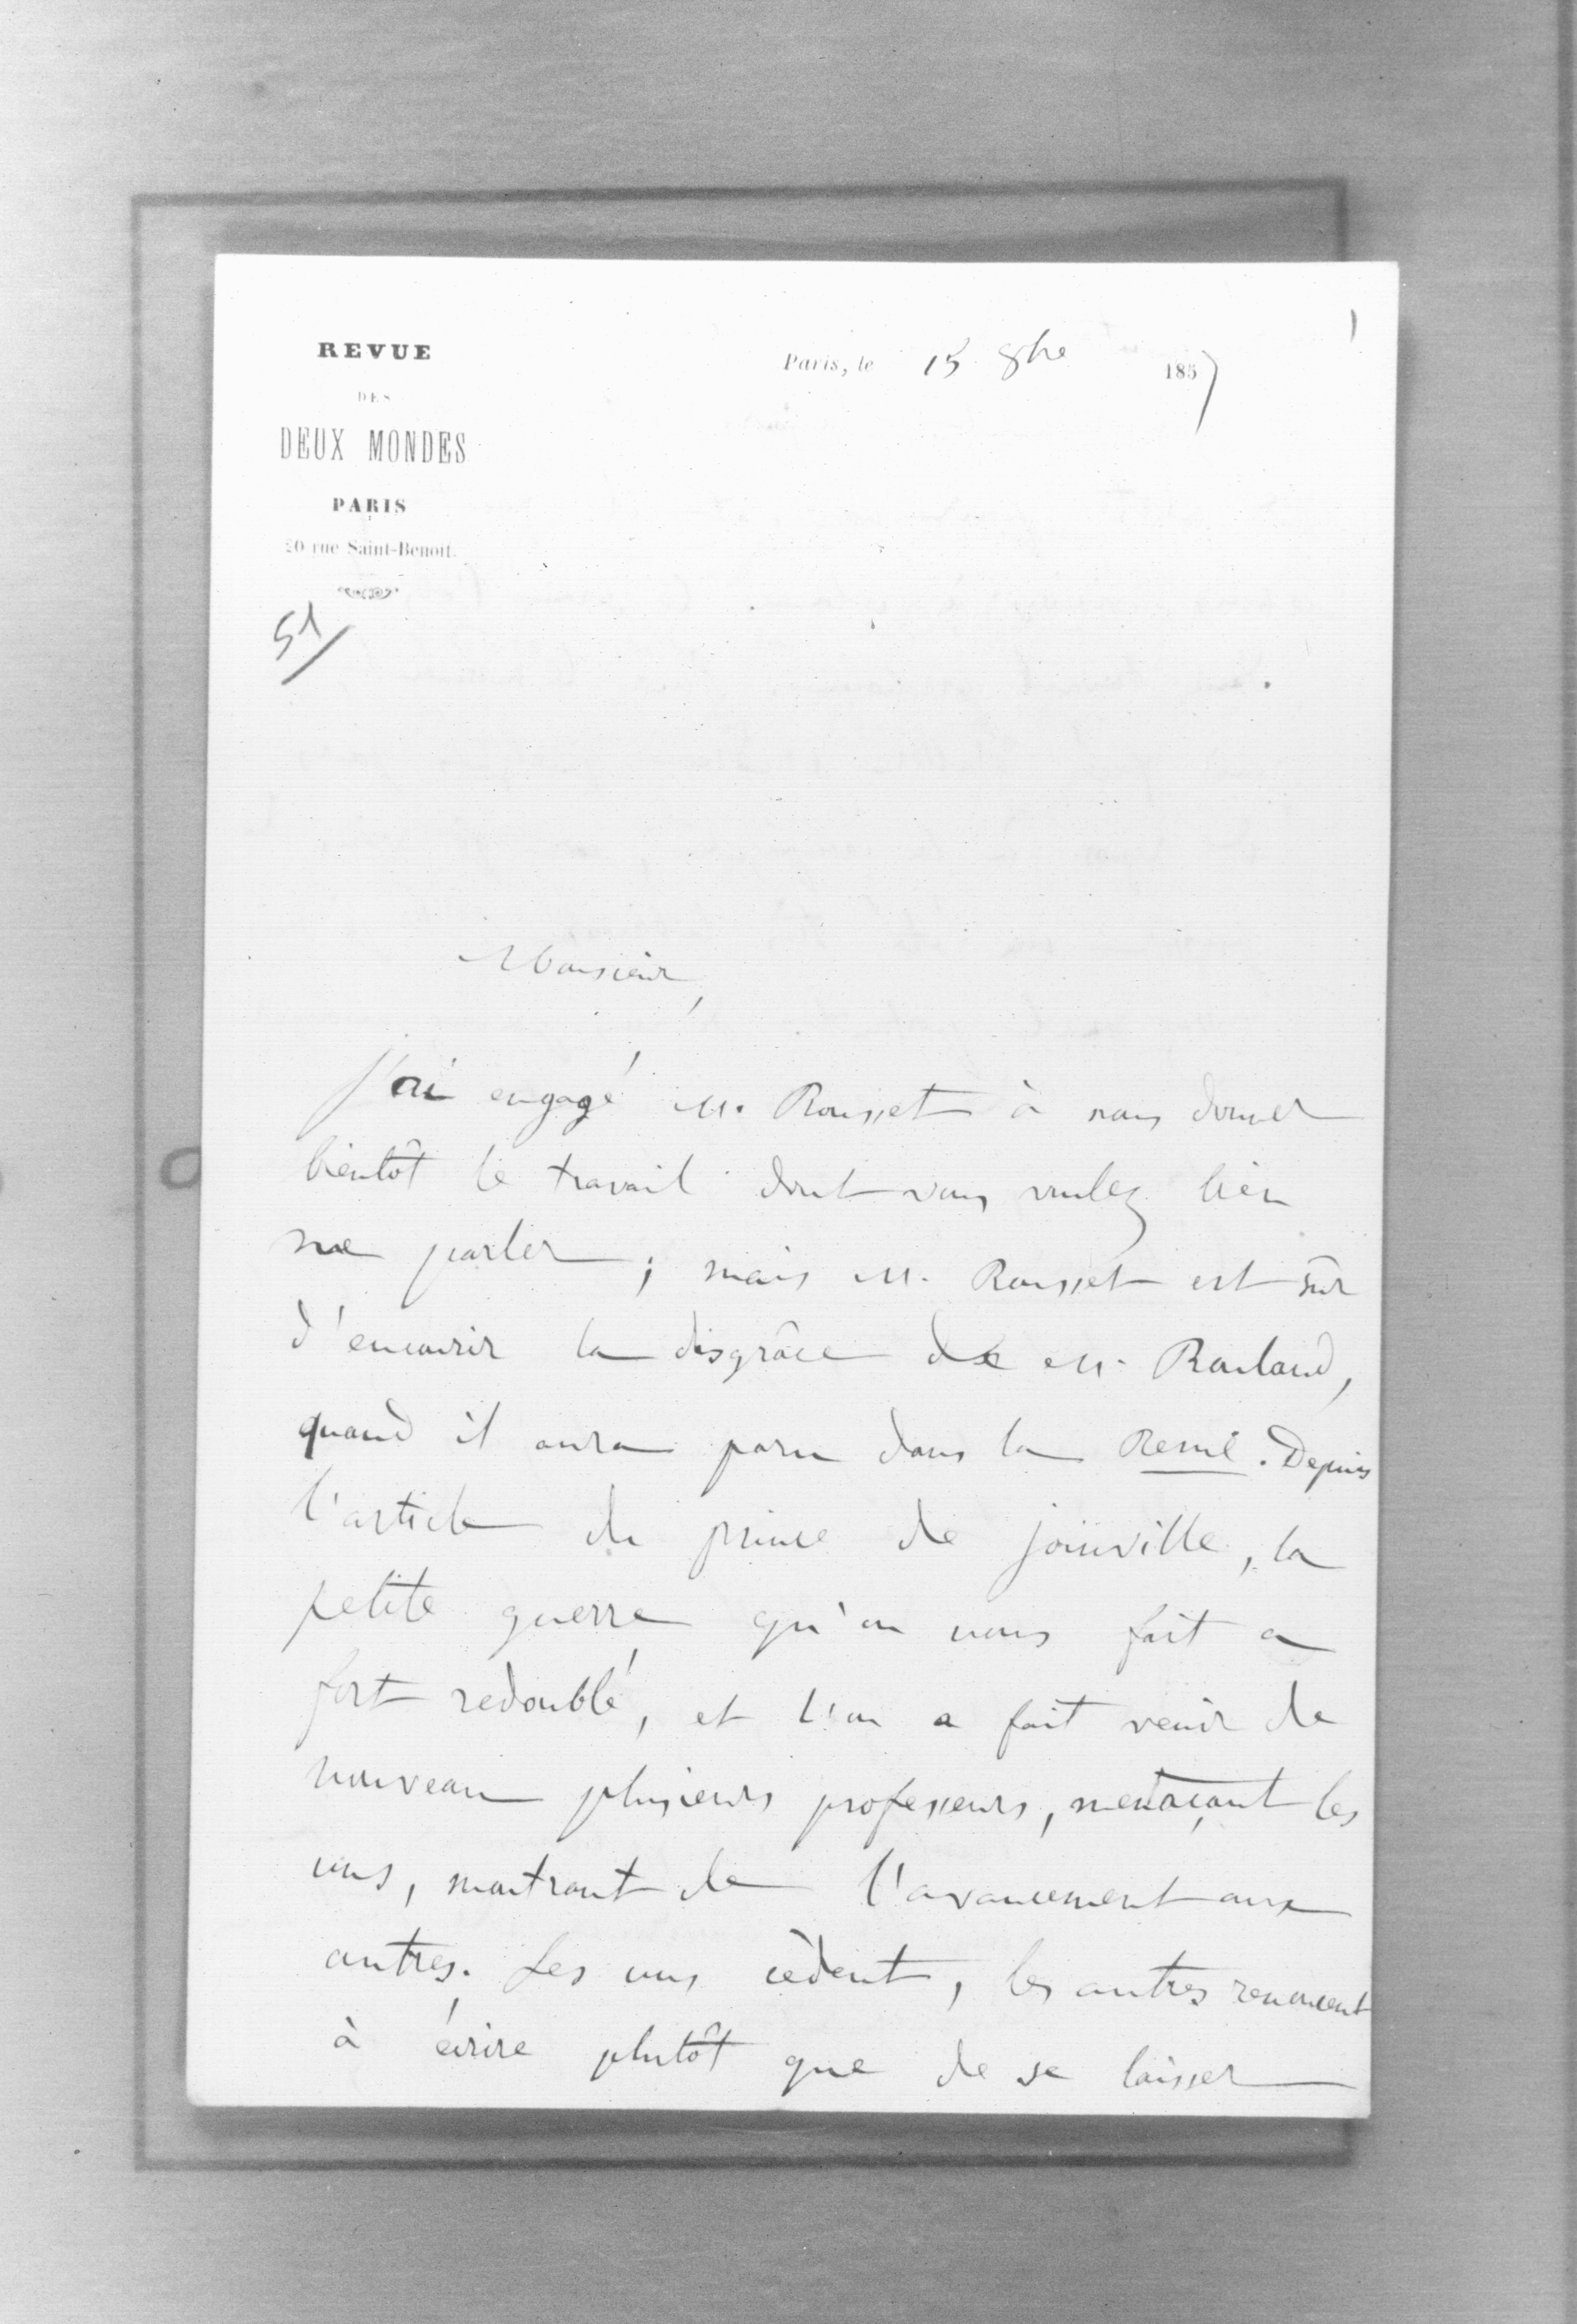 REVUE
DES
DEUX MONDES
PARIS
20 rue Saint-Benoit.
Paris, le 15 8bre 1857
1
51
Monsieur,
J'ai engagé M. Rousset à nous donner
bientôt le travail dont vous voulez bien
me parler ; mais M. Rousset est sûr
d'encourir la disgrâce de M. Rouland,
quand il aura paru dans la Revue. Depuis
l'article du prince de Joinville, la
petite guerre qu'on nous fait a
fort redoublé, et l'on a fait venir de
nouveau plusieurs professeurs, menaçant les
uns, montrant de l'avancement aux
autres. Les uns cèdent, les autres renoncent
à écrire plutôt que de se laisser